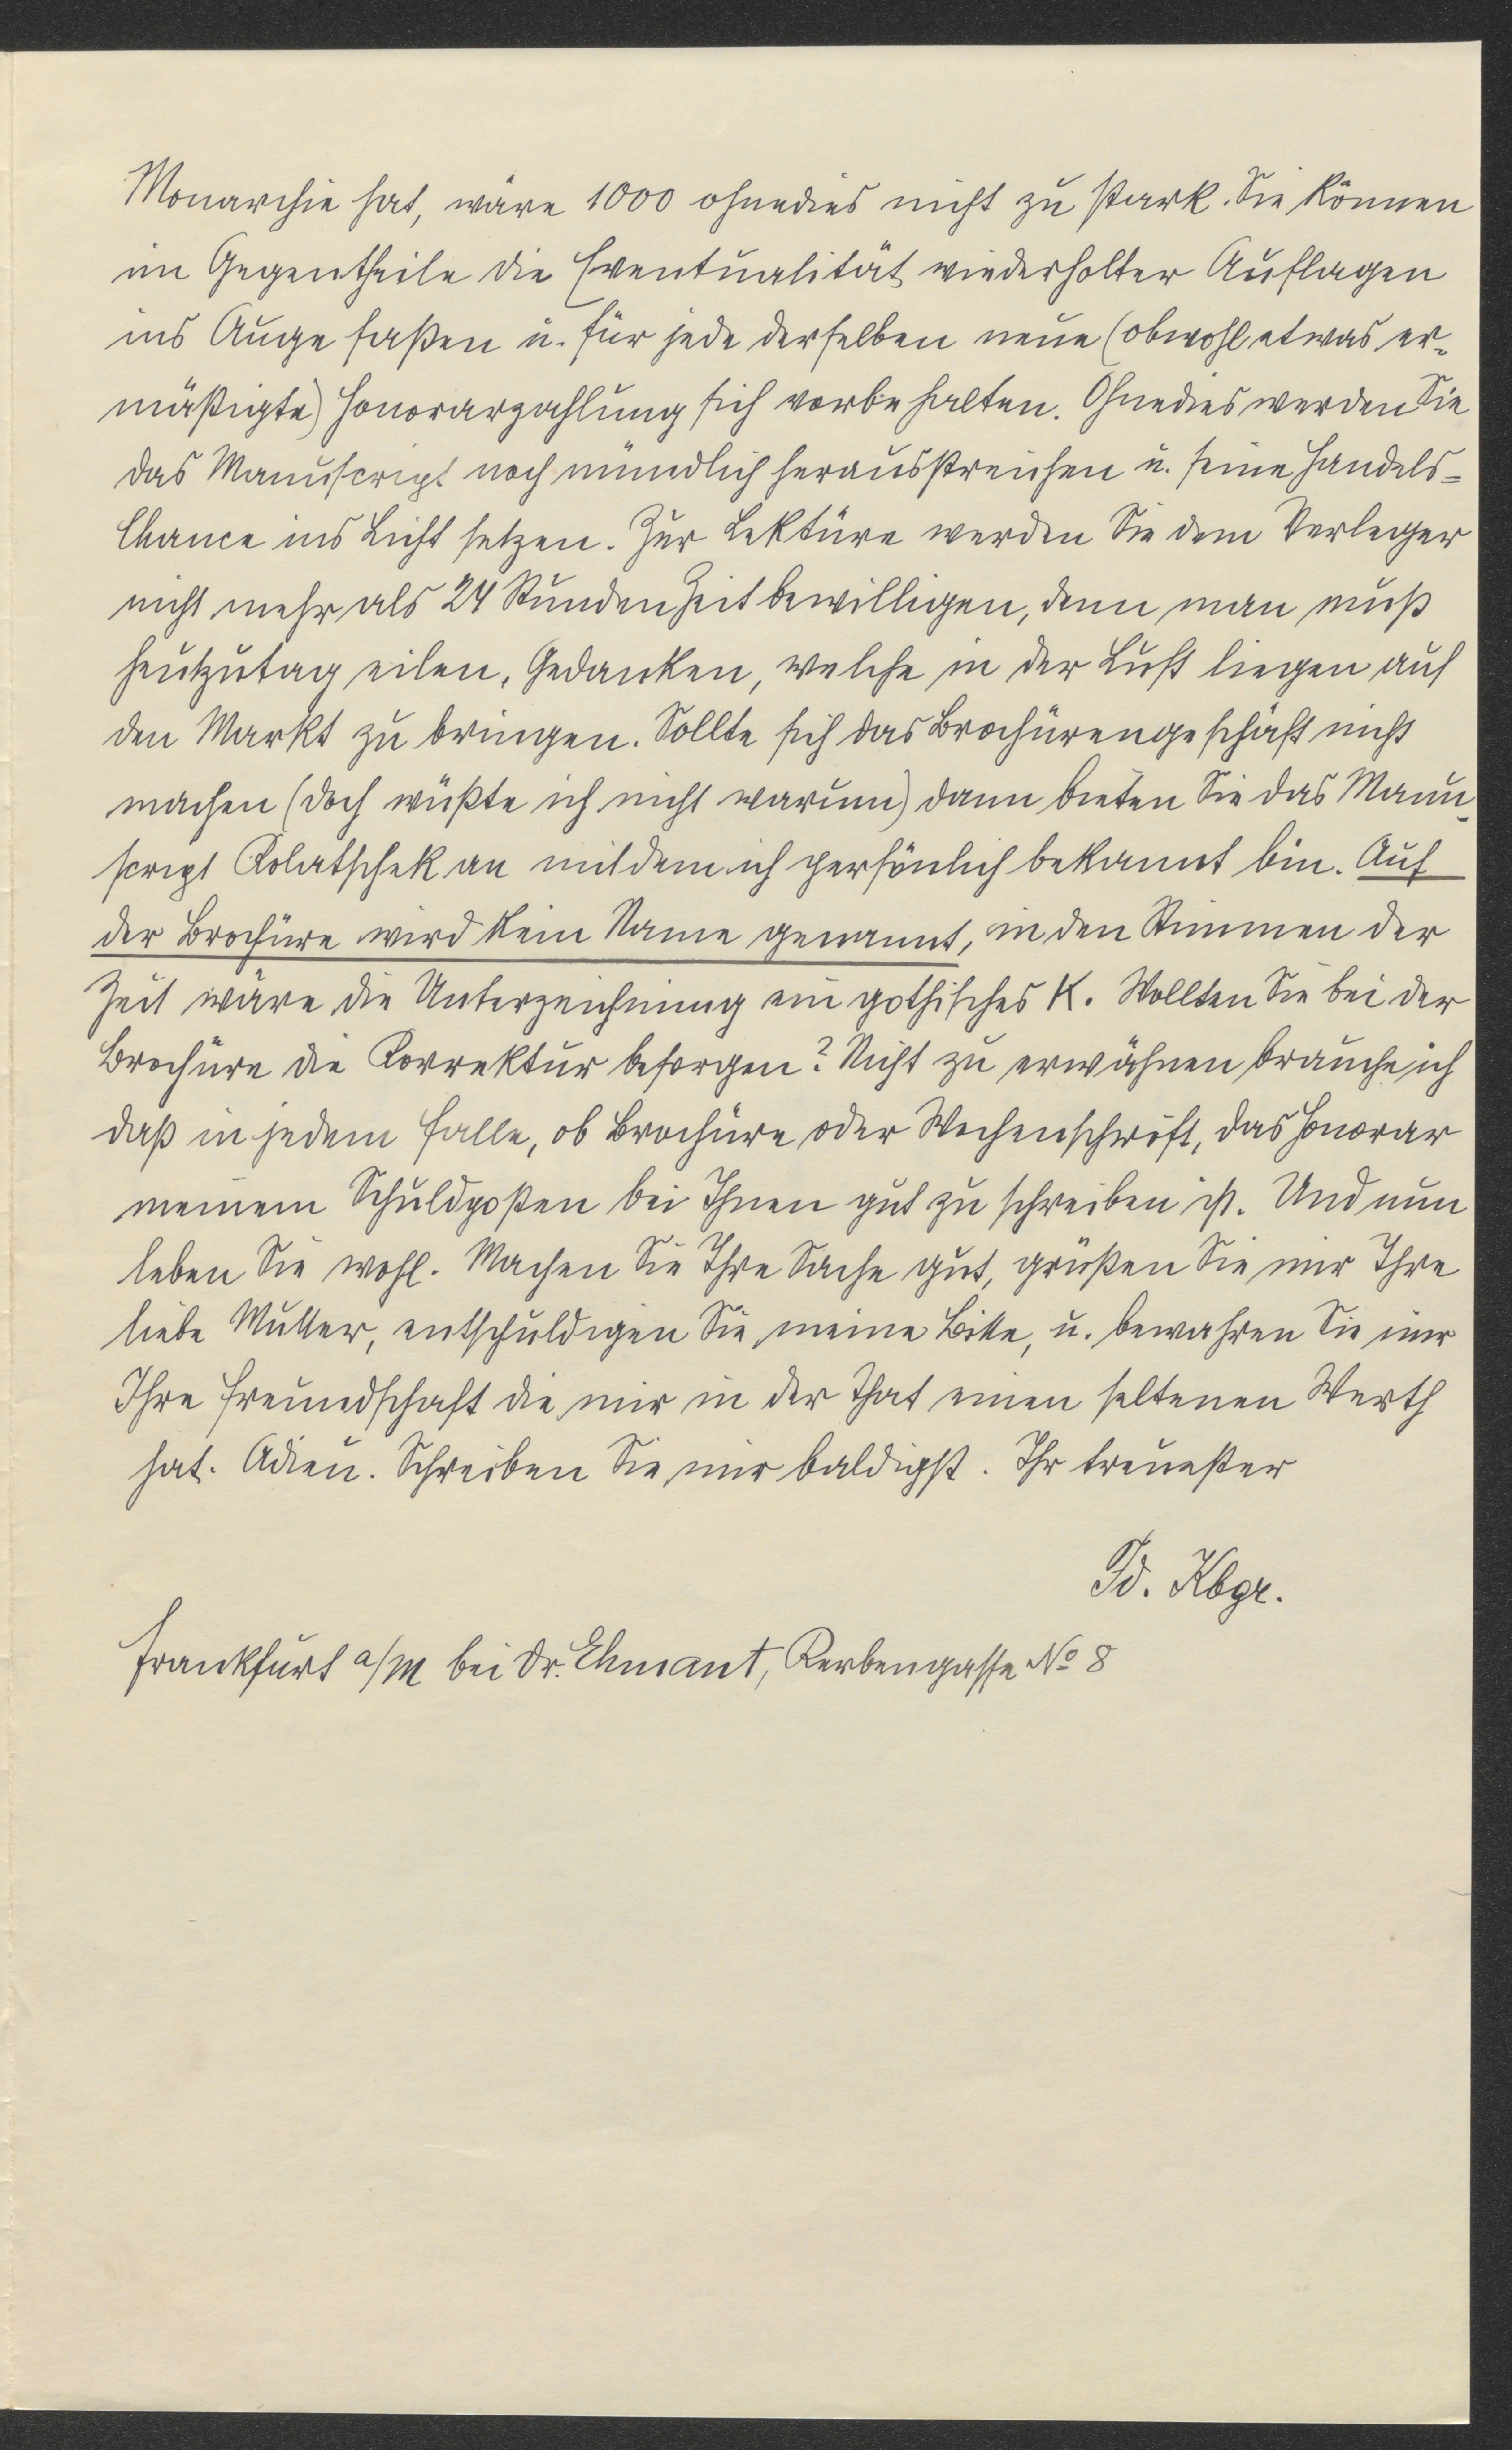 Monarchie hat, wäre 1000 ohnedies nicht zu stark. Sie können
im Gegentheile die Eventualität wiederholter Auflagen
ins Auge faßen u. für jede derselben neue (obwohl etwas er-
mäßigte) Honorarzahlung sich vorbehalten. Ohnedies werden Sie
das Manuscript noch mündlich herausstreichen u. seine Handels-
Chance ins Licht setzen. Zur Lektüre werden Sie dem Verleger
nicht mehr als 24 Stunden Zeit bewilligen, denn man muß
heutzutag eilen, Gedanken, welche in der Luft liegen auf
den Markt zu bringen. Sollte sich das Brochürengeschäft nicht
machen (doch wüßte ich nicht warum) dann bieten Sie das Manu-
script Kolatschek an mit dem ich persönlich bekannt bin. Auf
der Brochüre wird kein Name genannt, in den Stimmen der
Zeit wäre die Unterzeichnung ein gothisches K. Wollten Sie bei der
Brochüre die Korrektur besorgen? Nicht zu erwähnen brauche ich
daß in jedem Falle, ob Brochüre oder Wochenschrift, das Honorar
meinem Schuldposten bei Ihnen gut zu schreiben ist. Und nun
leben Sie wohl. Machen Sie Ihre Sache gut, grüßen Sie mir Ihre
liebe Mutter, entschuldigen Sie meine Bitte, u. bewahren Sie mir
Ihre Freundschaft die mir in der That einen seltenen Werth
hat. Adieu. Schreiben Sie mir baldigst. Ihr treuester
Fd. Kbgr.
Frankfurt a/M bei Dr. Ehmant, Kerbengasse No 8